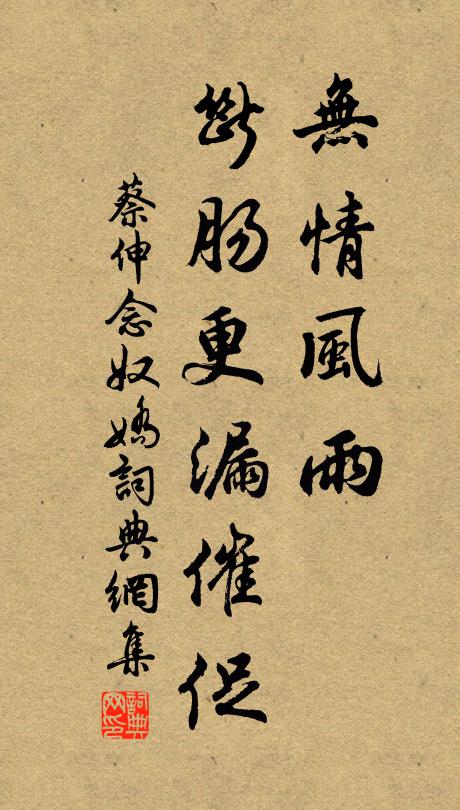 無情風雨
斷肠更漏催促
蔡伸念奴嬌詞典網集
詞典网印